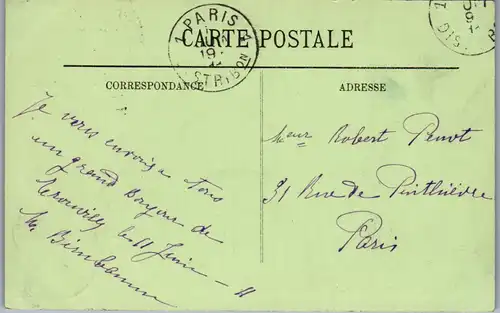 PARIS
CARTE POSTALE
CORRESPONDANCE
ADRESSE
Je vous envoie a tous
un grand bonjour de
Trouville le 11 Juin - 11
M. Birnbaum
Robert
31 Rue de Penthièvre
Paris